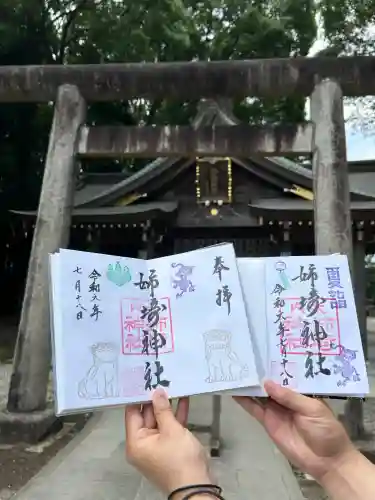 奉拝
姉埼神社
令和元年
七月十八日
夏詣
姉埼神社
令和元年七月十八日